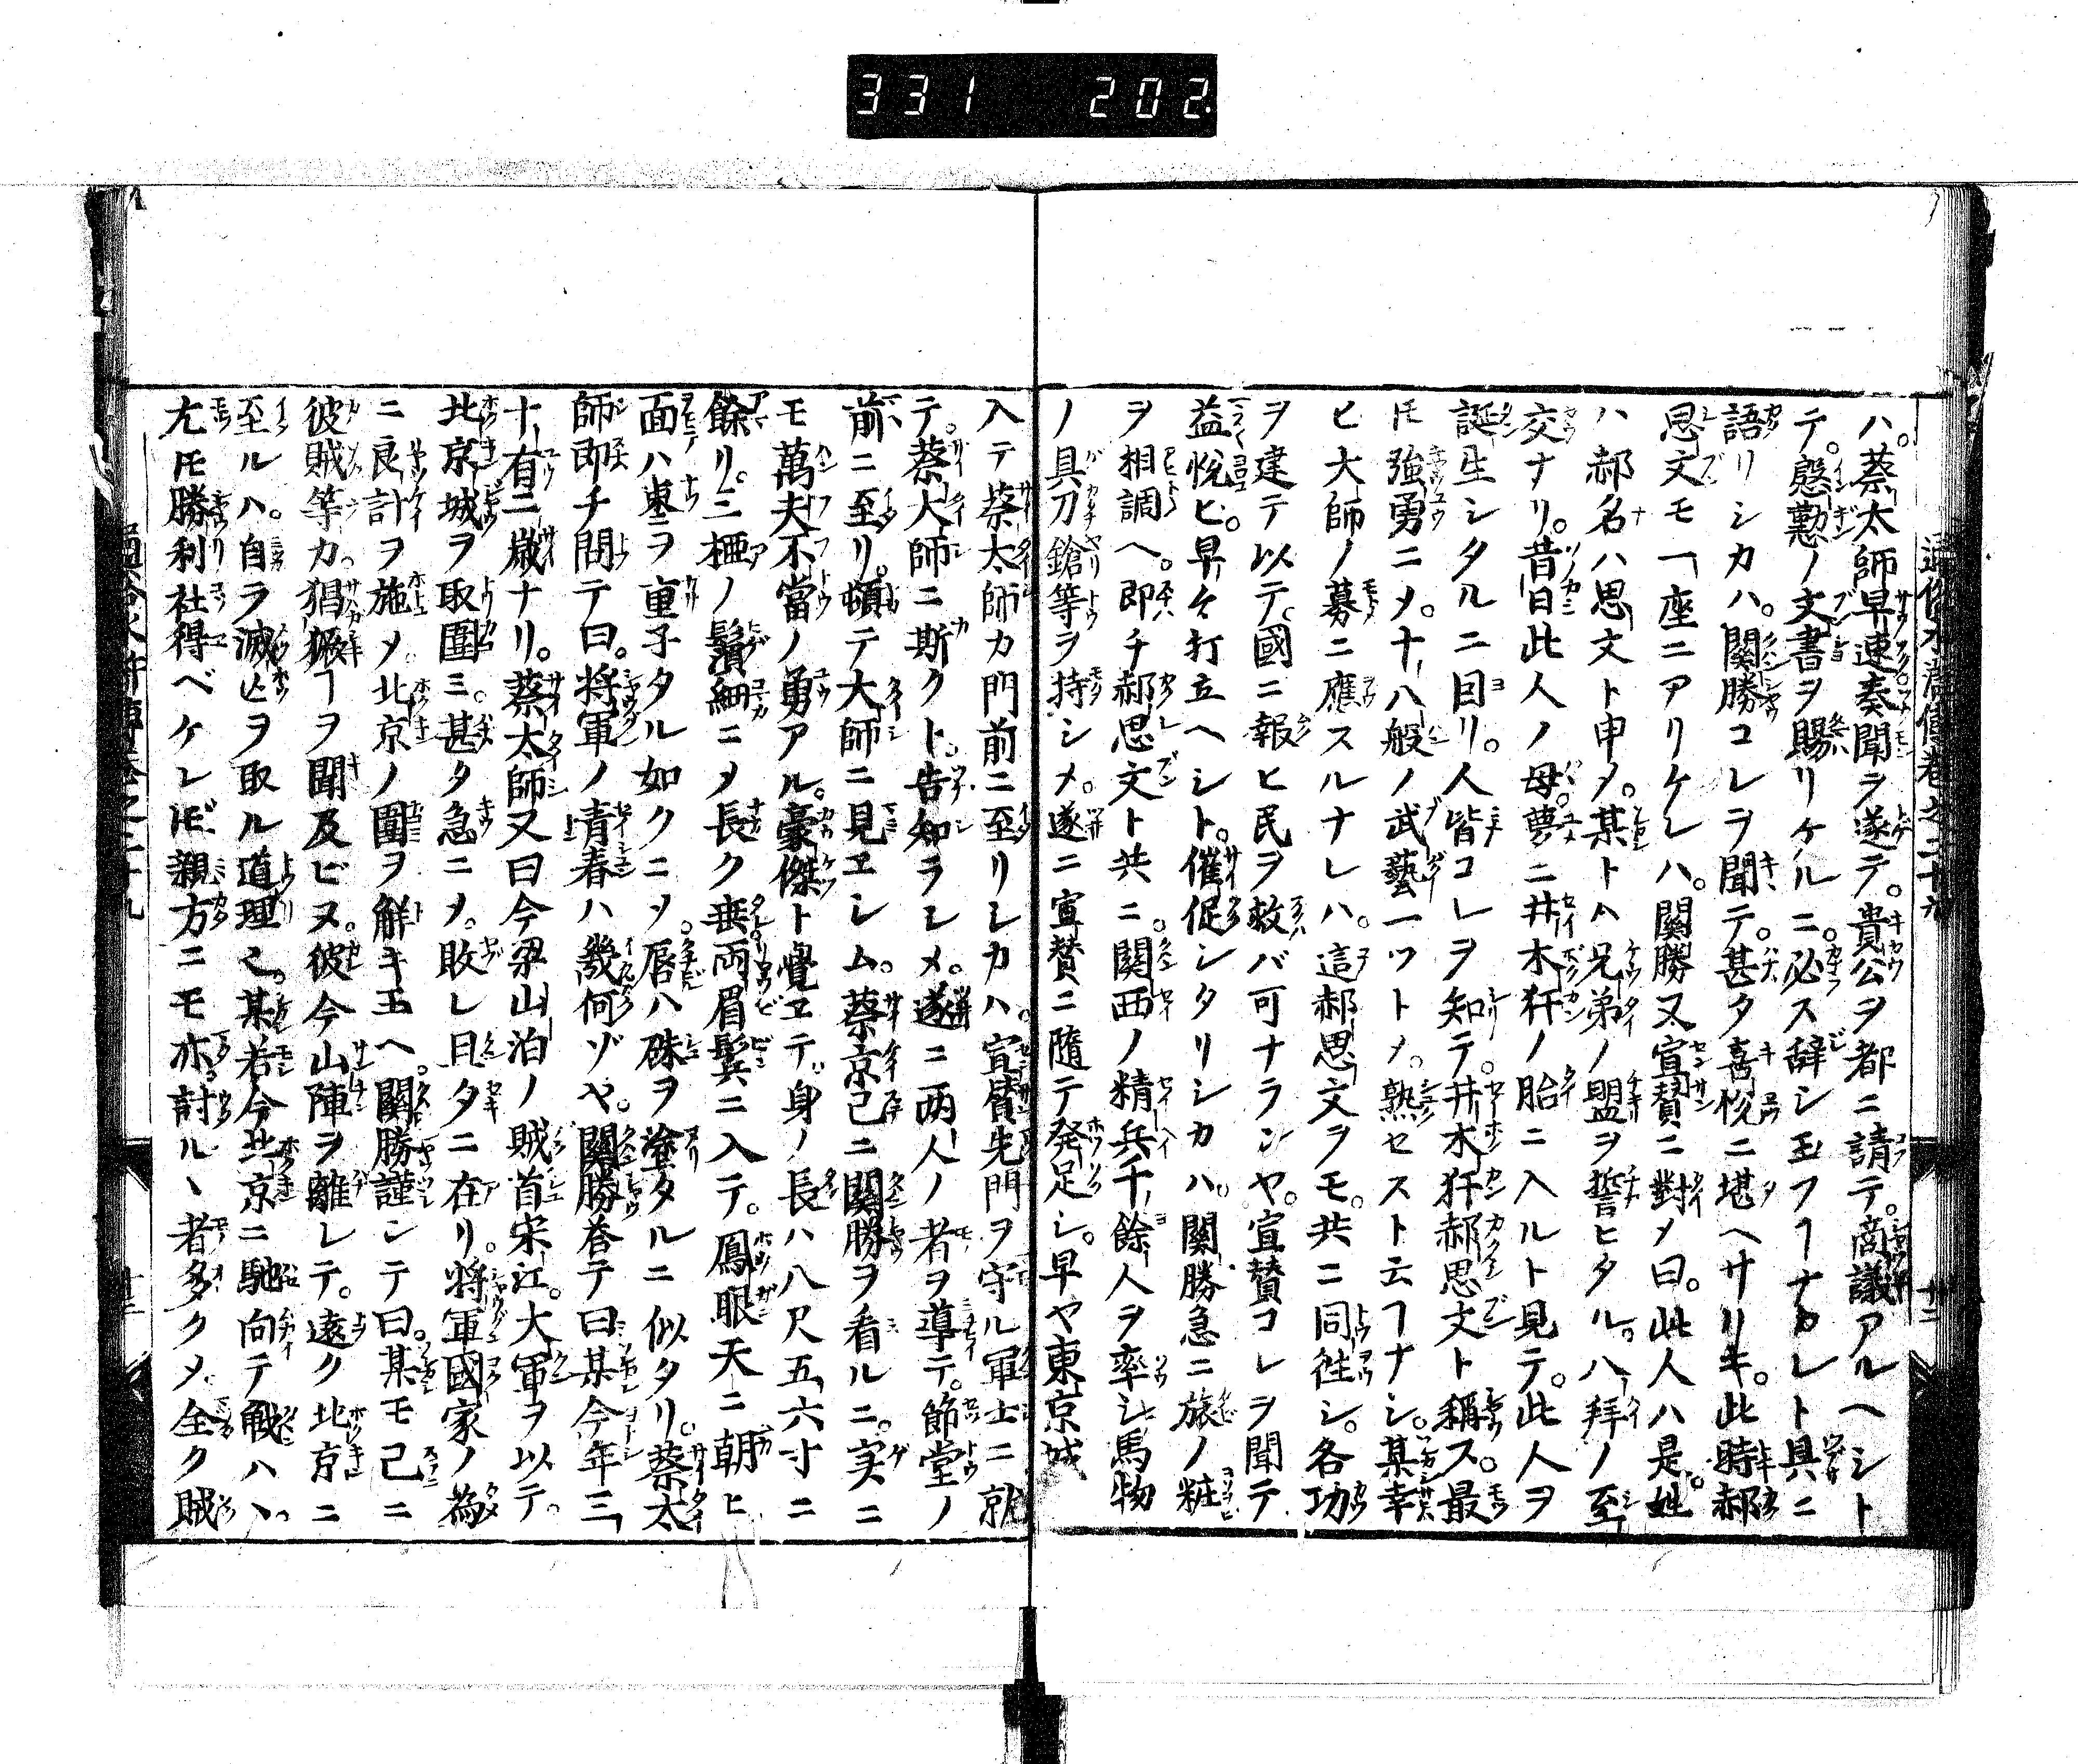 331 202
ハ。蔡太師早速奏聞ヲ遂テ。貴公ヲ都ニ請テ。商議アルヘシト
テ。慇懃ノ文書ヲ賜リケルニ。必ス辞シ玉フヿナカレト具ニ
語リシカハ。關勝コレヲ聞テ。甚タ喜悅ニ堪ヘサリキ。此時郝
思文モ一座ニアリケレハ。關勝又宣賛ニ對メ曰。此人ハ是。姓
ハ郝名ハ思文ト申タ。某トハ兄弟ノ盟ヲ誓ヒタル。八拜ノ至
交ナリ。昔日此人ノ母。夢ニ井木犴ノ胎ニ入ルト見テ。此人ヲ
誕生シタルニ因リ。人皆コレヲ知テ。井木犴郝思文ト稱ス。最
𪜈強勇ニメ。十八般ノ武藝一ツトメ。熟セスト云ヿナシ。某幸
ヒ大師ノ募ニ應スルナレハ。這郝思文ヲモ。共ニ同往シ。各功
ヲ建テ以テ。國ニ報ヒ民ヲ救バ可ナランヤ。宣賛コレヲ聞テ
益悅ヒ。早々打立ヘシト。催促シタリシカハ。關勝急ニ旅ノ粧
ヲ相調ヘ。即チ郝思文ト共ニ。關西ノ精兵千餘人ヲ率シ馬物
ノ具刀鎗等ヲ持シメ。遂ニ宣賛ニ隨テ発足シ。早ヤ東京城
入テ蔡太師カ門前ニ至リシカハ。宣賛先門ヲ守ル軍士ニ就
テ。蔡大師ニ斯クト。告知ラシメ。遂ニ両人ノ者ヲ導テ。節堂ノ
前ニ至リ。頓テ大師ニ見ヱシム。蔡京己ニ關勝ヲ看ルニ。実ニ
モ萬夫不當ノ勇アル。豪傑ト覺ヱテ。身ノ長ハ八尺五六寸ニ
餘リ。三椏ノ鬚細ニメ長ク垂。両眉鬂ニ入テ。鳳眼天ニ朝ヒ
面ハ棗ヲ重子タル如クニメ。唇ハ硃ヲ塗タルニ似タリ。蔡太
師即チ問テ曰。将軍ノ青春ハ幾何ゾヤ。關勝荅テ曰某今年三
十有二歳ナリ。蔡太師又曰今梁山泊ノ賊首宋江。大軍ヲ以テ。
北京城ヲ取圍ミ。甚タ急ニメ。敗レ旦夕ニ在リ。将軍國家ノ為
ニ良計ヲ施メ。北京ノ圍ヲ觧キ玉ヘ。關勝謹ンテ曰。某モ己ニ
彼賊等カ。猖獗ヿヲ聞及ビヌ。彼今山陣ヲ離レテ。遠ク北京ニ
至ルハ。自ラ滅亡ヲ取ル道理也。某若今北京ニ馳向テ戦ハヽ。
尤𪜈勝利社得ベケレ𪜈。親方ニモ亦討ルヽ者多クメ全ク賊